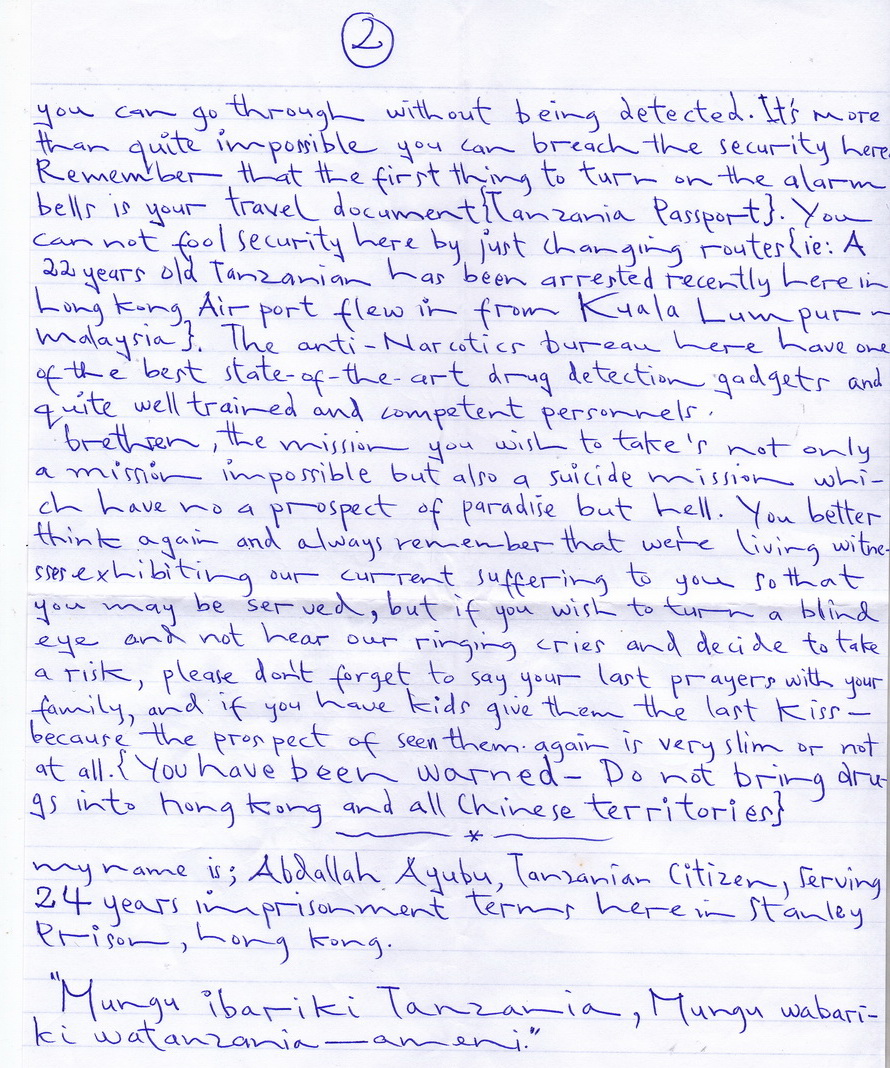 2
you can go through without being detected. It's more
than quite impossible you can breach the security here.
Remember that the first thing to turn on the alarm
bells is your travel document{Tanzania Passport}. You
can not fool security here by just changing routes{ie: A
22 years old Tanzanian has been arrested recently here in
hong kong Air port flew in from Kuala Lumpur -
malaysia}. The anti-Narcotics bureau here have one
of the best state-of-the-art drug detection gadgets and
quite well trained and competent personnels.
brethren, the mission you wish to take's not only
a mission impossible but also a suicide mission whi-
ch have no a prospect of paradise but hell. You better
think again and always remember that we're living witne-
sses exhibiting our current suffering to you so that
you may be served, but if you wish to turn a blind
eye and not hear our ringing cries and decide to take
a risk, please don't forget to say your last prayers with your
family, and if you have kids give them the last kiss -
because the prospect of seen them again is very slim or not
at all.{You have been warned - Do not bring dru-
gs into hong kong and all Chinese territories}
*
my name is; Abdallah Ayubu, Tanzanian Citizen, serving
24 years imprisonment terms here in Stanley
Prison, hong kong.
"Mungu ibariki Tanzania, Mungu wabari-
ki watanzania — ameni."